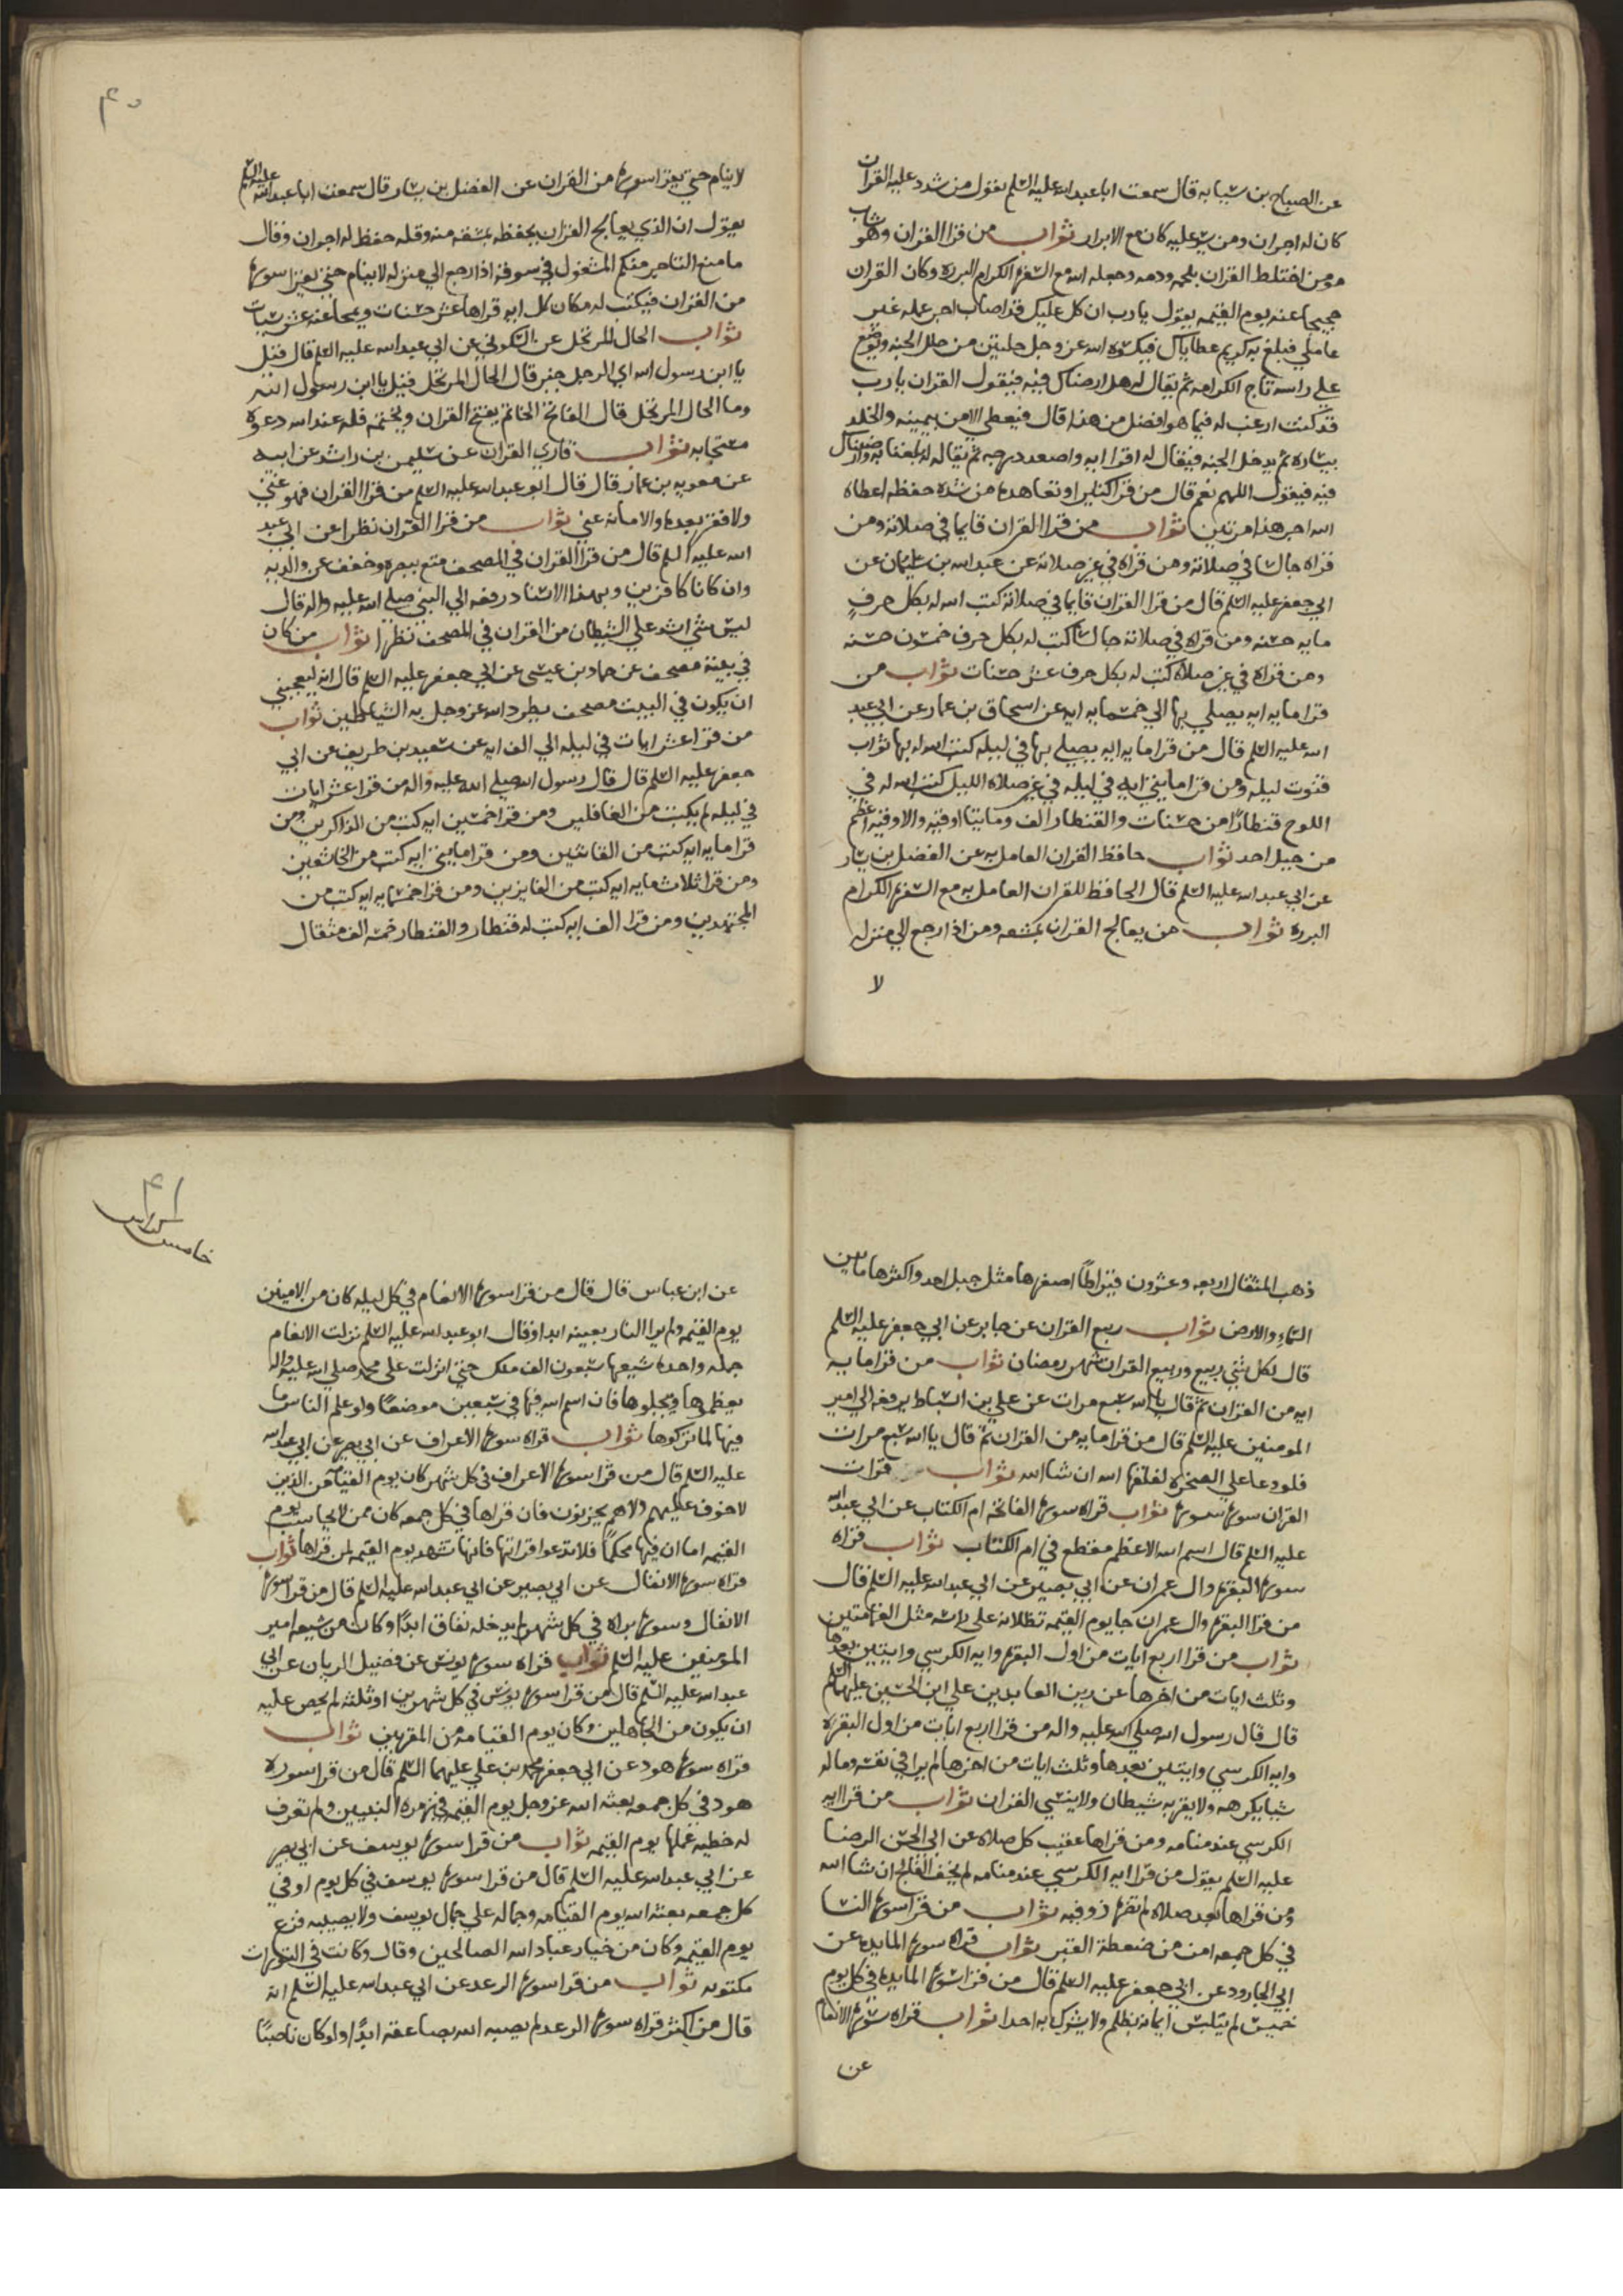 عن الصباح بن شبابه قال سمعت ابا عبد الله عليه السلم يقول من شدد عليه القران
كان له اجران ومن يسر عليه كان مع الابرار ثواب من قرا القران وهو شاب
مومن اختلط القران بلحمه ودمه وجعله الله مع السفره الكرام البرره وكان القران
حجيجا عنه يوم القيمه يقول يا رب ان كل عليك قد اصاب اجر عمله غير
عاملي فبلغ به كريم عطاياك فيكسوه الله عز وجل حلتين من حلل الجنه ويوضع
علي راسه تاج الكرامه ثم يقال له هل ارضناك فيه فيقول القران يا رب
قد كنت ارغب له فيما هو افضل من هذا قال فيعطي الامن بيمينه والخلد
بيساره ثم يدخل الجنه فيقال له اقرا ايه واصعد درجه ثم يقال له بلغنا به وارضيناك
فيه فيقول اللهم نعم قال من قرا كثيرا وتعاهده من شده حفظه اعطاه
الله اجر هذا مرتين ثواب من قرا القران قايما في صلاته ومن
قراه جالسا في صلاته ومن قراه في غير صلاته عن عبد الله بن سليمان عن
ابي جعفر عليه السلم قال من قرا القران قايما في صلاته كتب الله له بكل حرف
مايه حسنه ومن قراه في صلاته جالسا كتب له بكل حرف خمسون حسنه
ومن قراه في غير صلاه كتب له بكل حرف عشر حسنات ثواب من
قرا مايه ايه يصلي بها الي خمسمايه ايه عن اسحاق بن عمار عن ابي عبد
الله عليه السلم قال من قرا مايه ايه يصلي بها في ليله كتب الله له بها ثواب
قنوت ليله ومن قرا مايتي ايه في ليله في غير صلاه الليل كتب الله له في
اللوح قنطارا من حسنات والقنطار الف ومايتا اوقيه والاوقيه اعظم
من جبل احد ثواب حافظ القران العامل به عن الفضل بن يسار
عن ابي عبد الله عليه السلم قال الحافظ للقران العامل به مع السفره الكرام
البرره ثواب من يعالج القران بمشقه ومن اذا رجع الي منزله
لا
٤٠
لا ينام حتي يقرا سوره من القران عن الفضل بن يسار قال سمعت ابا عبد الله عليه السلم
يقول ان الذي يعالج القران بحفظه بمشقه منه وقله حفظ له اجران وقال
ما منع التاجر منكم المشغول في سوقه اذا رجع الي منزله لا ينام حتي يقرا سوره
من القران فيكتب له مكان كل ايه قراها عشر حسنات ويمحا عنه عشر سيات
ثواب الحال المرتحل عن السكوني عن ابي عبد الله عليه السلم قال قيل
يا ابن رسول الله اي الرجل خير قال الحال المرتحل قيل يا ابن رسول الله
وما الحال المرتحل قال الفاتح الخاتم يفتح القران ويختمه فله عند الله دعوه
مستجابه ثواب قاري القران عن سليمن بن راشد عن ابيه
عن معويه بن عمار قال قال ابو عبد الله عليه السلم من قرا القران فهو غني
ولا فقر بعده والا مابه غني ثواب من قرا القران نظرا عن ابي عبد
الله عليه السلم قال من قرا القران في المصحف متع ببصره وخفف عن والديه
وان كانا كافرين وبهذا الاسناد رفعه الي النبي صلي الله عليه واله قال
ليس شي اشد علي الشيطان من القران في المصحف نظرا ثواب من كان
في بيته مصحف عن حماد بن عيسي عن ابي جعفر عليه السلم قال انه ليعجبني
ان يكون في البيت مصحف يطرد الله عز وجل به الشياطين ثواب
من قرا عشر ايات في ليله الي الف ايه عن سعيد بن طريف عن ابي
جعفر عليه السلم قال قال رسول الله صلي الله عليه واله من قرا عشر ايات
في ليله لم يكتب من الغافلين ومن قرا خمسين ايه كتب من الذاكرين ومن
قرا مايه ايه كتب من القانتين ومن قرا مايتي ايه كتب من الخاشعين
ومن قرا ثلاث مايه ايه كتب من الفايزين ومن قرا خمسمايه ايه كتب من
المجتهدين ومن قرا الف ايه كتب له قنطار والقنطار خمسه الف مثقال
ذهب المثقال اربعه وعشرون قيراطا اصغرها مثل جبل احد واكثرها ما بين
السماء والارض ثواب ربيع القران عن جابر عن ابي جعفر عليه السلم
قال لكل شي ربيع وربيع القران شهر رمضان ثواب من قرا مايه
ايه من القران ثم قال يا الله سبع مرات عن علي بن اسباط يرفعه الي امير
المومنين عليه السلم قال من قرا مايه من القران ثم قال يا الله سبع مرات
فلو دعا علي الصخره لفلقها الله ان شا الله ثواب قرات
القران سوره سوره ثواب قراه سوره الفاتحه ام الكتاب عن ابي عبد الله
عليه السلم قال اسم الله الاعظم مقطع في ام الكتاب ثواب قراه
سوره البقره وال عمران عن ابي بصير عن ابي عبد الله عليه السلم قال
من قرا البقره وال عمران جا يوم القيمه تظلانه علي راسه مثل الغمامتين
ثواب من قرا اربع ايات من اول البقره وايه الكرسي وايتين بعدها
وثلث ايات من اخرها عن زين العابدين علي ابن الحسين عليهما السلم
قال قال رسول الله صلي الله عليه واله من قرا اربع ايات من اول البقره
وايه الكرسي وايتين بعدها وثلث ايات من اخرها لم يرا في نفسه وماله
شيا يكرهه ولا يقربه شيطان ولا ينسي القران ثواب من قرا ايه
الكرسي عند منامه ومن قراها عقيب كل صلاه عن ابي الحسن الرضا
عليه السلم يقول من قرا ايه الكرسي عند منامه لم يخف الفالج ان شا الله
ومن قراها بعد صلاه لم تضره ذو فيه ثواب من قرا سوره النسا
في كل جمعه امن من ضغطة القبر ثواب قراه سوره المايده عن
ابي الجارود عن ابي جعفر عليه السلم قال من قرا سوره المايده في كل يوم
خميس لم يتلبس ايمانه بظلم ولا يشرك به احدا ثواب قراه سوره الانعام
عن
٤١
خامس كراس
عن ابن عباس قال قال من قرا سوره الانعام في كل ليله كان من الامينين
يوم القيمه ولم يرا النار بعينه ابدا وقال ابو عبد الله عليه السلم نزلت الانعام
جمله واحده شيعها سبعون الف ملك حتي انزلت علي محمد صلي الله عليه واله
يعظموها ويبجلوها فان اسم الله فيها في سبعين موضعا ولو علم الناس ما
فيها لما تركوها ثواب قراه سوره الاعراف عن ابي بصير عن ابي عبد الله
عليه السلم قال من قرا سوره الاعراف في كل شهر كان يوم القيامه من الذين
لا خوف عليهم ولا هم يحزنون فان قراها في كل جمعه كان ممن لا يحاسب يوم
القيمه اما ان فيها محكما فلا تدعوا قراتها فانها تشهد يوم القيمه لمن قراها ثواب
قراه سوره الانفال عن ابي بصير عن ابي عبد الله عليه السلم قال من قرا سوره
الانفال وسوره براه في كل شهر لم يدخله نفاق ابدا وكان من شيعه امير
المومنين عليه السلم ثواب قراه سوره يونس عن فضيل الريان عن ابي
عبد الله عليه السلم قال من قرا سوره يونس في كل شهرين او ثلثه لم يخش عليه
ان يكون من الجاهلين وكان يوم القيامه من المقربين ثواب
قراه سوره هود عن ابي جعفر محمد بن علي عليهما السلم قال من قرا سوره
هود في كل جمعه بعثه الله عز وجل يوم القيمه في زمره النبيين ولم تعرف
له خطيه عملها يوم القيمه ثواب من قرا سوره يوسف عن ابي بصير
عن ابي عبد الله عليه السلم قال من قرا سوره يوسف في كل يوم او في
كل جمعه بعثه الله يوم القيامه وجماله علي جمال يوسف ولا يصيبه فزع
يوم القيمه وكان من خيار عباد الله الصالحين وقال وكانت في التوراه
مكتوبه ثواب من قرا سوره الرعد عن ابي عبد الله عليه السلم انه
قال من اكثر قراه سوره الرعد لم يصبه الله بصاعقه ابدا ولو كان ناصبا